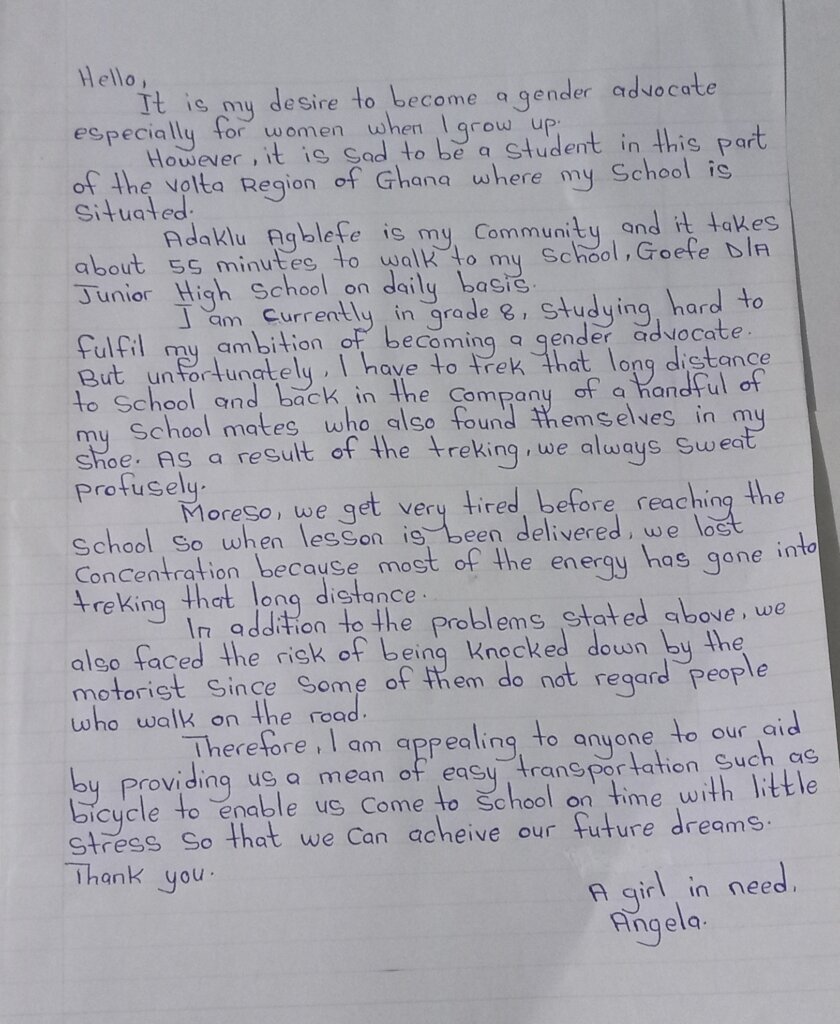 Hello,
It is my desire to become a gender advocate
especially for women when I grow up.
However, it is sad to be a student in this part
of the Volta Region of Ghana where my School is
Situated.
Adaklu Agblefe is my Community and it takes
about 55 minutes to walk to my School, Goefe D/A
Junior High School on daily basis.
I am Currently in grade 8, studying hard to
fulfil my ambition of becoming a gender advocate.
But unfortunately, I have to trek that long distance
to School and back in the Company of a handful of
my School mates who also found themselves in my
shoe. As a result of the treking, we always sweat
profusely.
Moreso, we get very tired before reaching the
School So when lesson is been delivered, we lost
Concentration because most of the energy has gone into
treking that long distance.
In addition to the problems stated above, we
also faced the risk of being Knocked down by the
motorist Since Some of them do not regard people
who walk on the road.
Therefore, I am appealing to anyone to our aid
by providing us a mean of easy transportation such as
bicycle to enable us Come to School on time with little
Stress So that we Can acheive our future dreams.
Thank you.
A girl in need.
Angela.